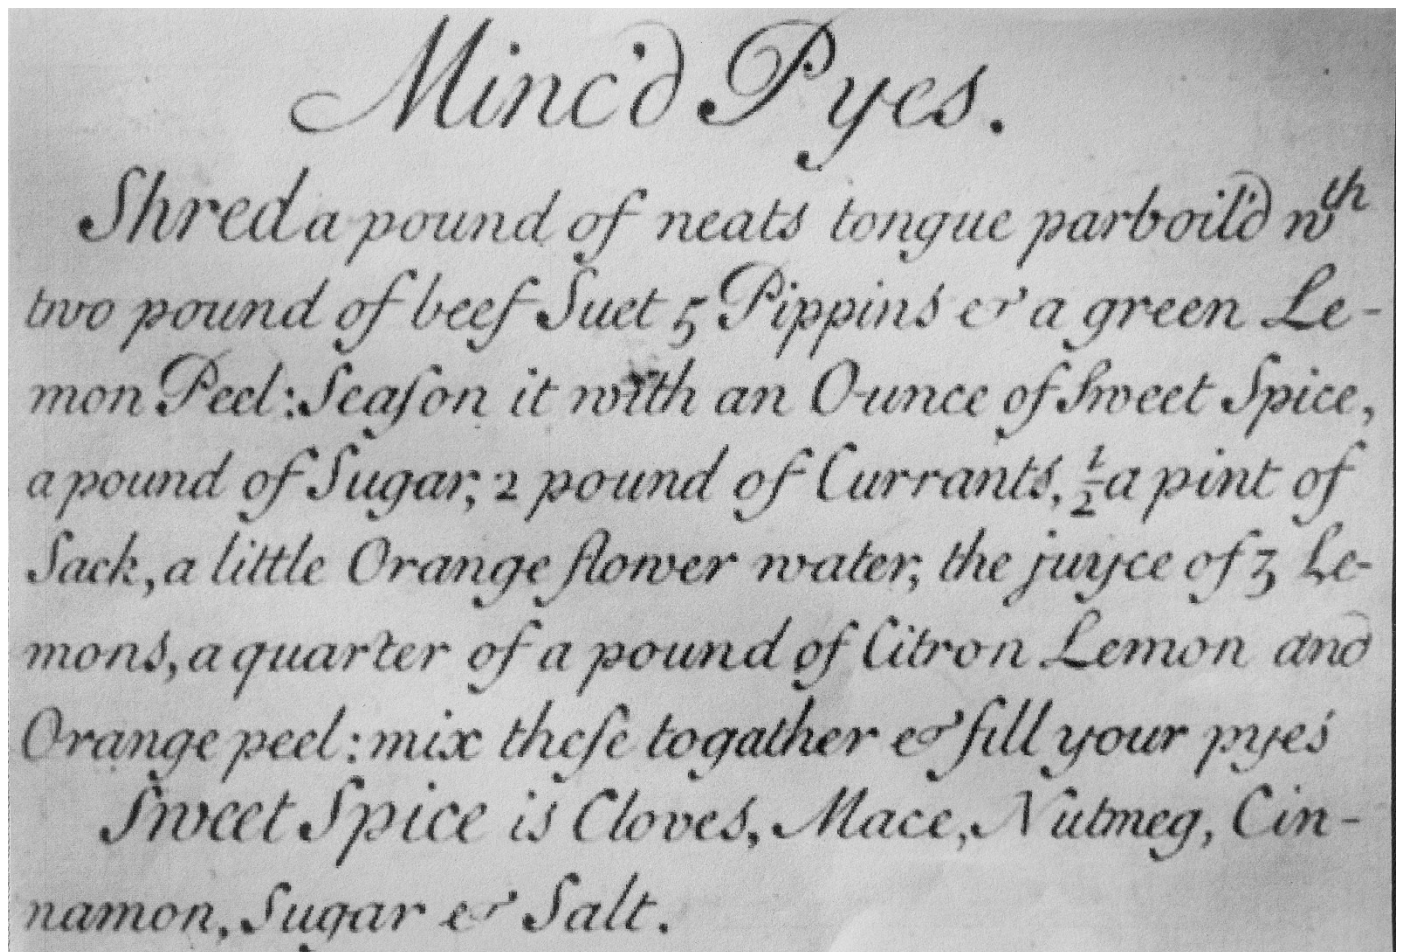 Minc'd Pyes.
Shred a pound of neats tongue parboil'd wth
two pound of beef Suet 5 Pippins & a green Le-
mon Peel: Seaſon it with an Ounce of Sweet Spice,
a pound of Sugar, 2 pound of Currants, ½ a pint of
Sack, a little Orange flower water, the juyce of 3 Le-
mons, a quarter of a pound of Citron Lemon and
Orange peel: mix theſe togather & fill your pyes
Sweet Spice is Cloves, Mace, Nutmeg, Cin-
namon, Sugar & Salt.